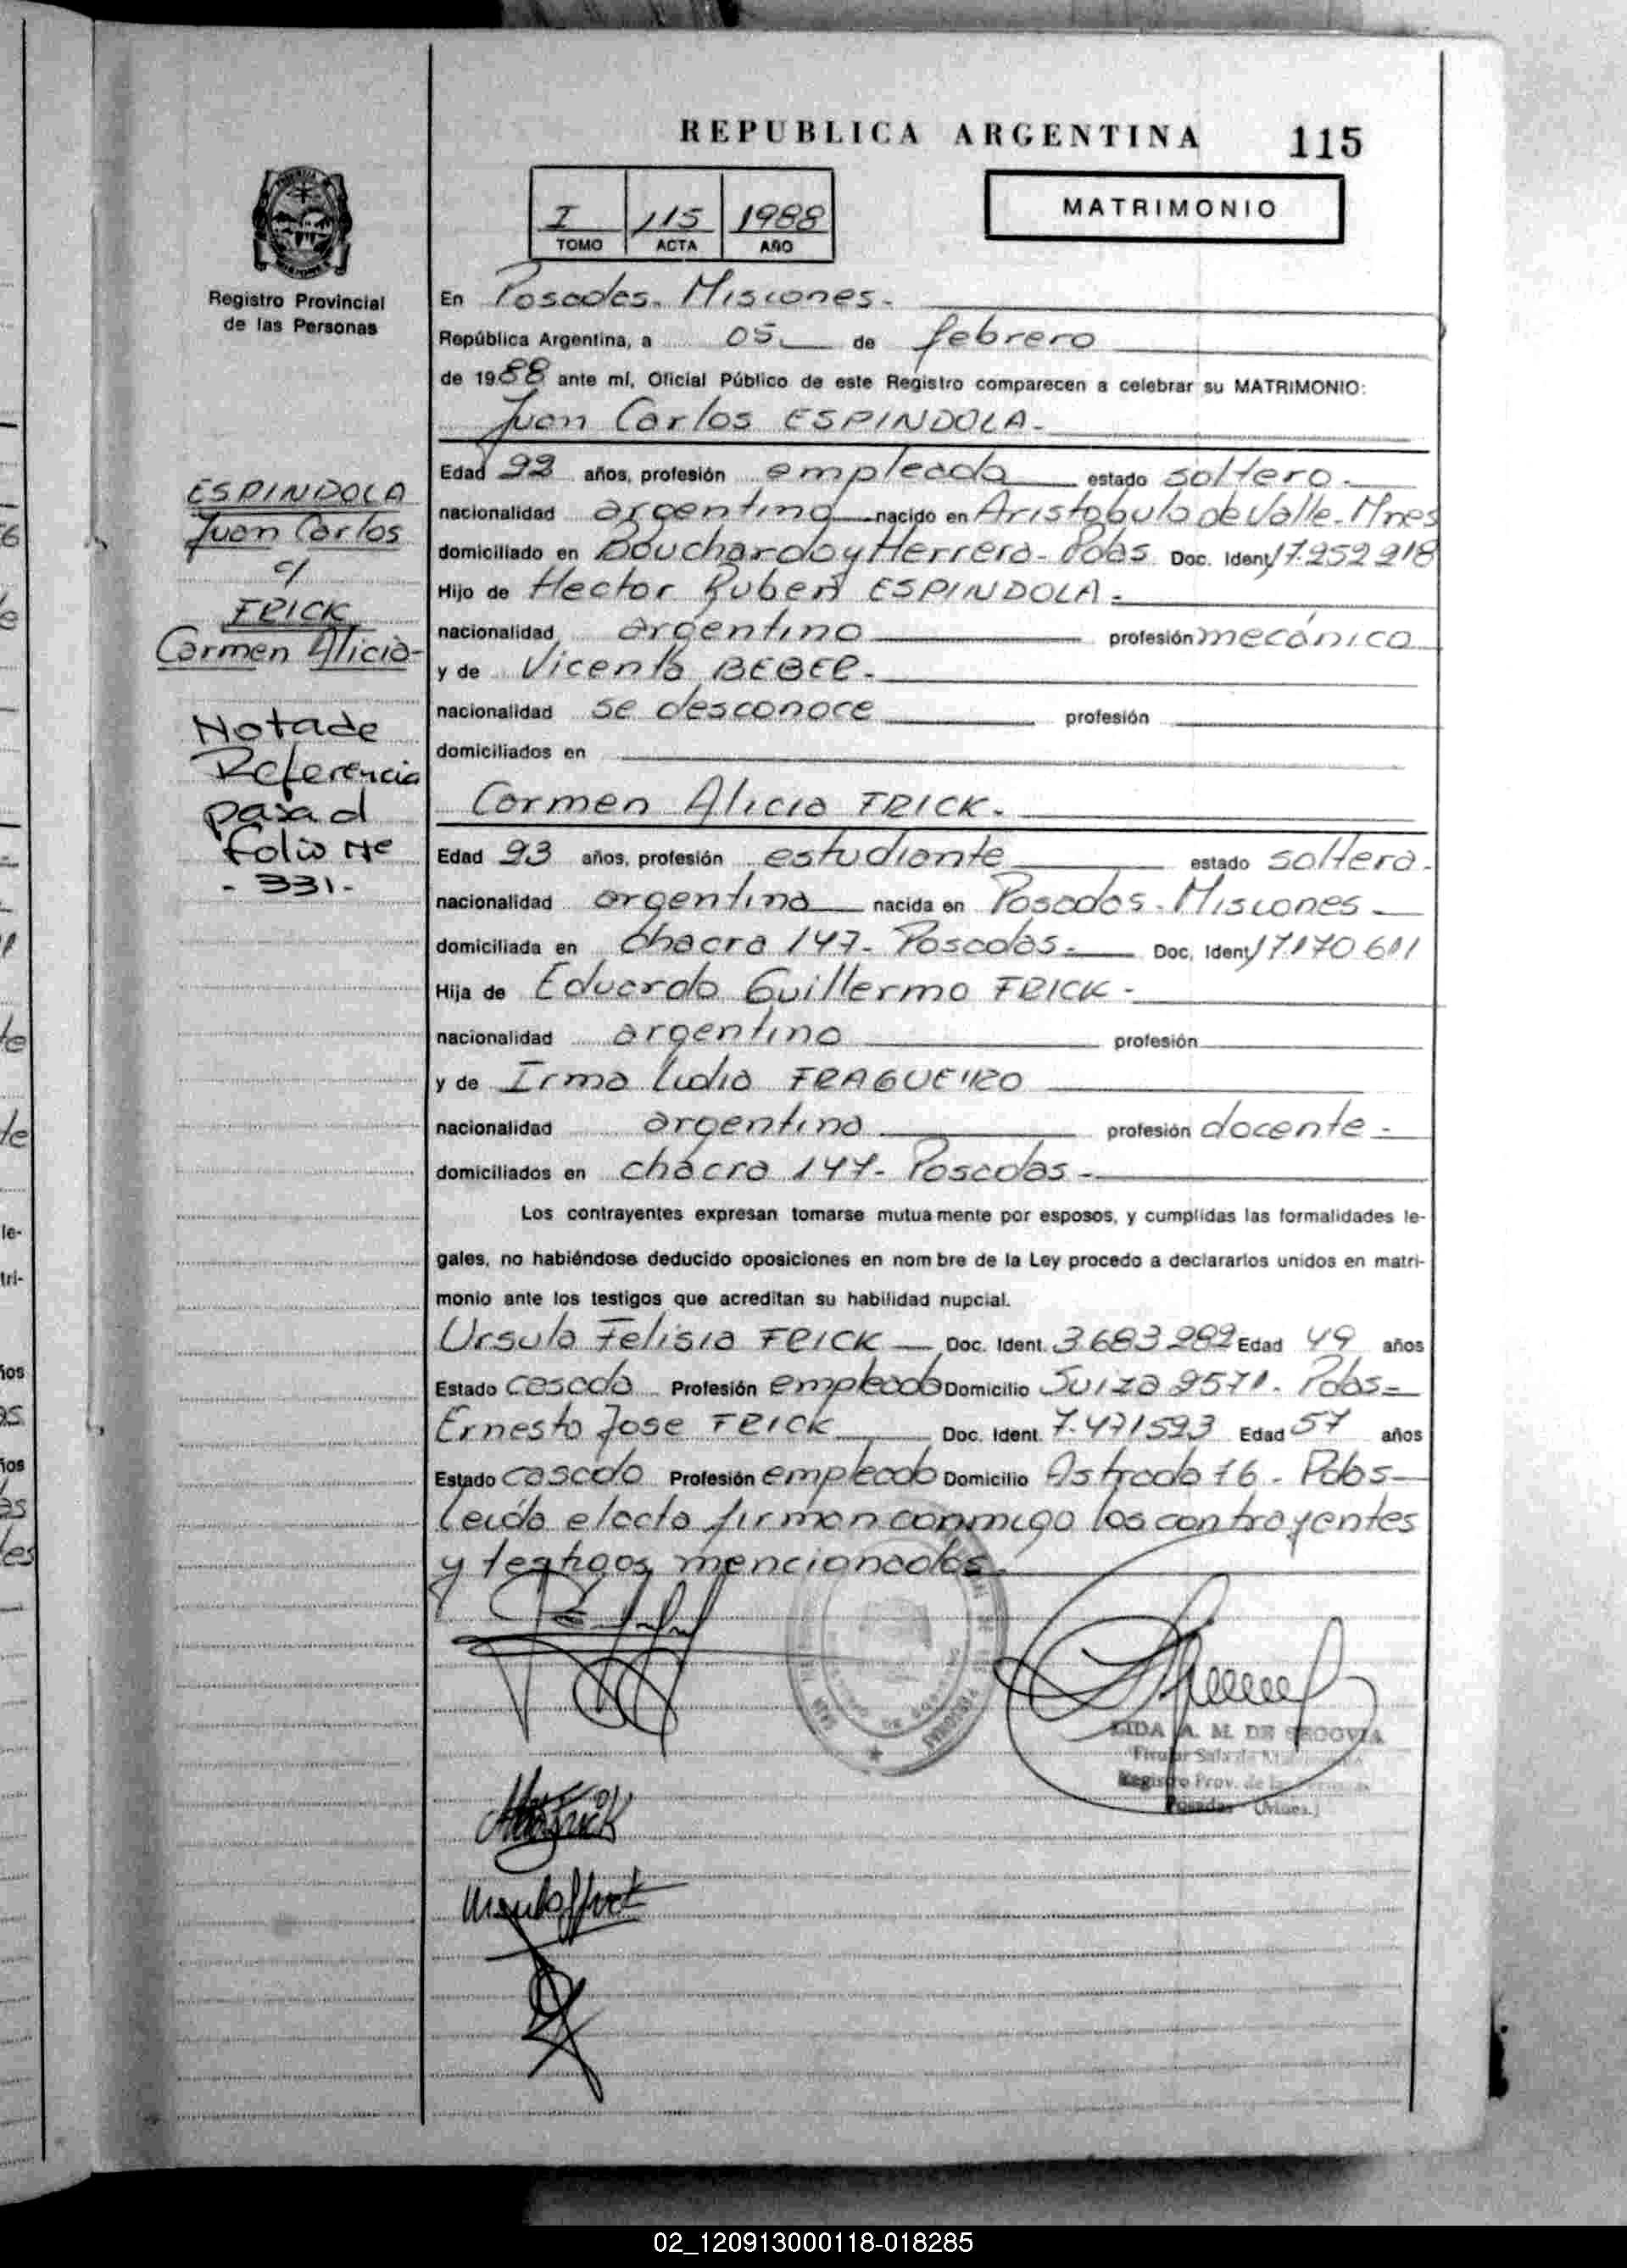 REPUBLICA ARGENTINA 115
I 115 1988
TOMO ACTA AÑO
MATRIMONIO
Registro Provincial
de las Personas
ESPINDOLA
Juan Carlos
c/
FRICK
Carmen Alicia-
Nota de
Referencia
pasa al
folio Nº
- 331 -
En Posadas. Misiones.
República Argentina, a 05 de febrero
de 1988 ante mí, Oficial Público de este Registro comparecen a celebrar su MATRIMONIO:
Juan Carlos ESPINDOLA.
Edad 22 años, profesión empleado estado soltero.
nacionalidad argentino nacido en Aristobulo de Valle. Mnes
domiciliado en Bouchardo y Herrera - Pdas Doc. Ident. 17.252.218
Hijo de Hector Ruben ESPINDOLA.
nacionalidad argentino profesión mecánico
y de Vicenta BEBER.
nacionalidad se desconoce profesión
domiciliados en
Carmen Alicia FRICK.
Edad 23 años, profesión estudiante estado soltera.
nacionalidad argentina nacida en Posadas. Misiones
domiciliada en chacra 147. Posadas. Doc. Ident. 17.170.611
Hija de Eduardo Guillermo FRICK.
nacionalidad argentino profesión
y de Irma Lidia FRAGUEIRO
nacionalidad argentina profesión docente.
domiciliados en chacra 147. Posadas.
Los contrayentes expresan tomarse mutuamente por esposos, y cumplidas las formalidades le-
gales, no habiéndose deducido oposiciones en nombre de la Ley procedo a declararlos unidos en matri-
monio ante los testigos que acreditan su habilidad nupcial.
Ursula Felisia FRICK Doc. Ident. 3.683.282 Edad 49 años
Estado casada Profesión empleada Domicilio Suiza 2571. Pdas
Ernesto Jose FRICK Doc. Ident. 7.471593 Edad 57 años
Estado casado Profesión empleado Domicilio Astrada 76. Pdas
leída el acta firman conmigo los contrayentes
y testigos mencionados.
LIDA A. M. DE SEGOVIA
Registro Prov. de las Personas
Posadas (Mnes.)
02_120913000118-018285